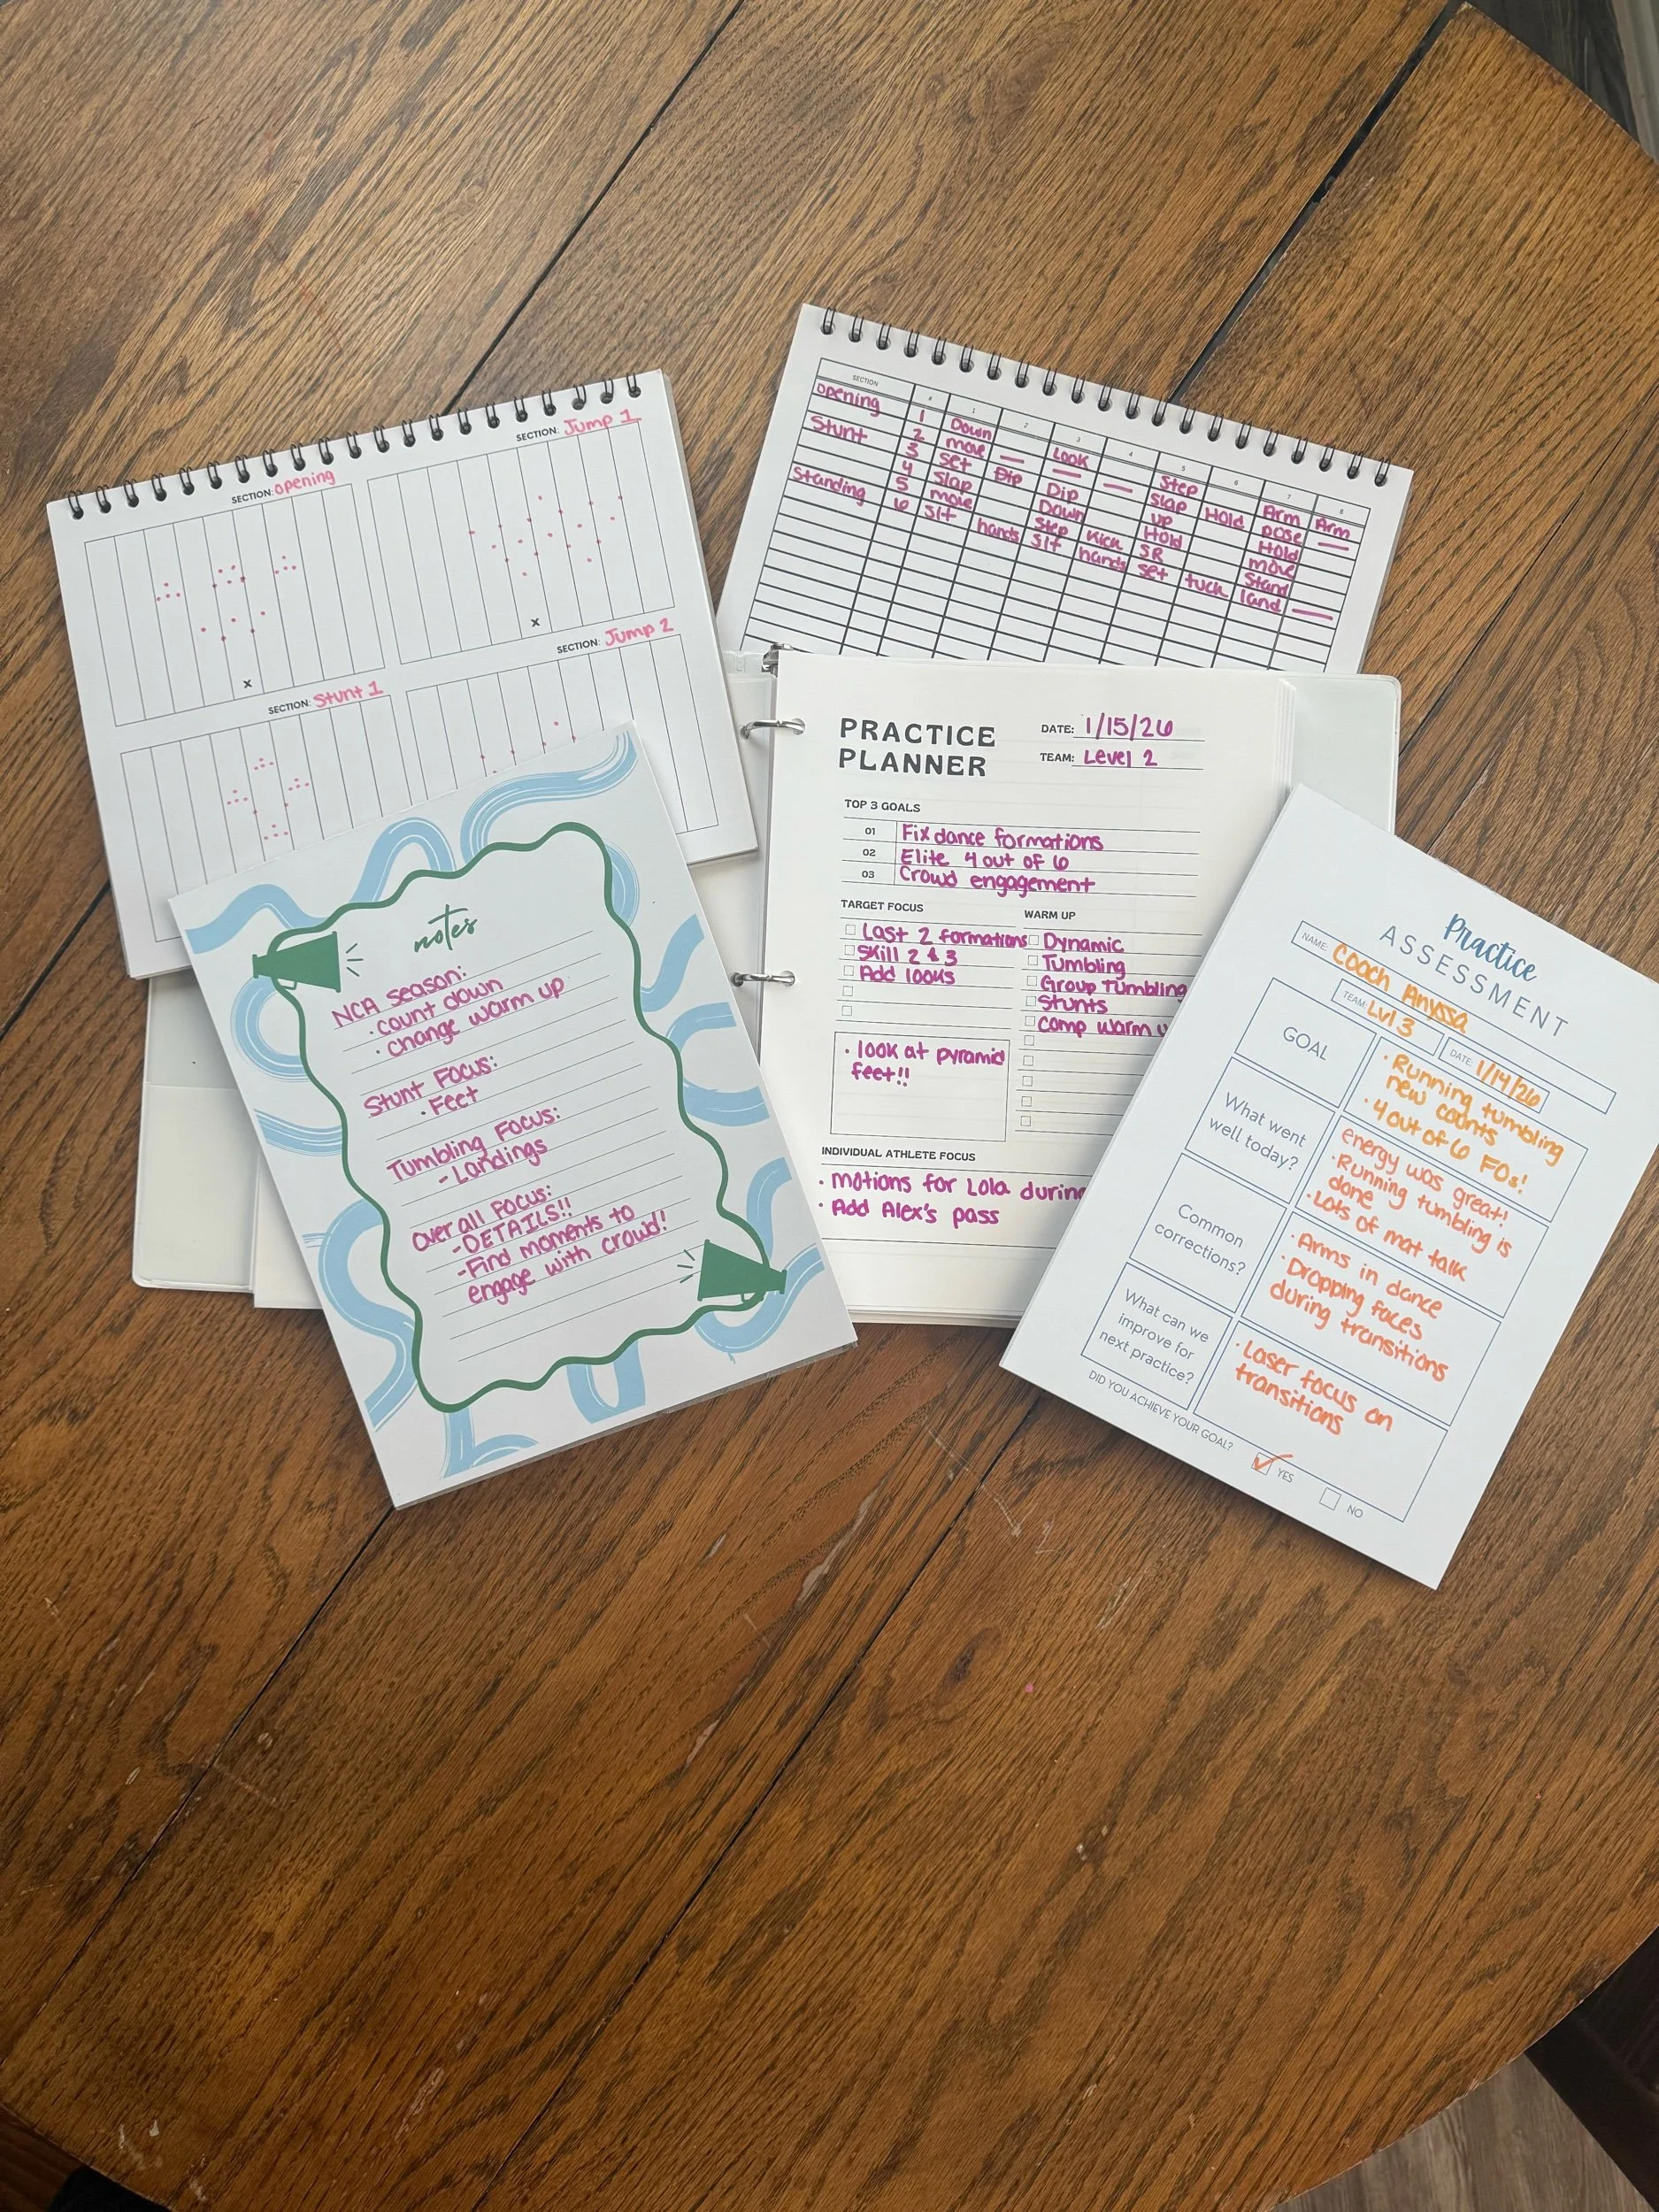 SECTION: Opening
SECTION: Jump 1
x
x
SECTION: Stunt 1
SECTION: Jump 2
SECTION # 1 2 3 4 5 6 7 8
Opening 1 Down — Look — Step Hold Arm Arm
Stunt 2 move Dip — Slap pose —
3 set Dip up Hold
4 Slap Down Hold move
Standing 5 move Step Kick SR Stand
6 Sit hands Sit hands set tuck land —
notes
NCA Season:
· count down
· change warm up
Stunt Focus:
· Feet
Tumbling Focus:
- Landings
Over all Focus:
- DETAILS!!
- Find moments to
engage with crowd!
PRACTICE
PLANNER
DATE: 1/15/26
TEAM: Level 2
TOP 3 GOALS
01 Fix dance formations
02 Elite 4 out of 6
03 Crowd engagement
TARGET FOCUS
Last 2 formations
Skill 2 & 3
Add looks
· look at pyramid
feet!!
WARM UP
Dynamic
Tumbling
Group Tumbling
Stunts
Comp warm u
INDIVIDUAL ATHLETE FOCUS
· motions for Lola during
· Add Alex's pass
Practice
ASSESSMENT
NAME: Coach Anyssa
TEAM: Lvl 3
DATE: 1/14/26
GOAL
· Running tumbling
new counts
· 4 out of 6 FOs!
What went
well today?
energy was great!
· Running tumbling is
done
· Lots of mat talk
Common
corrections?
· Arms in dance
· Dropping faces
during transitions
What can we
improve for
next practice?
· Laser focus on
transitions
DID YOU ACHIEVE YOUR GOAL?
YES
NO